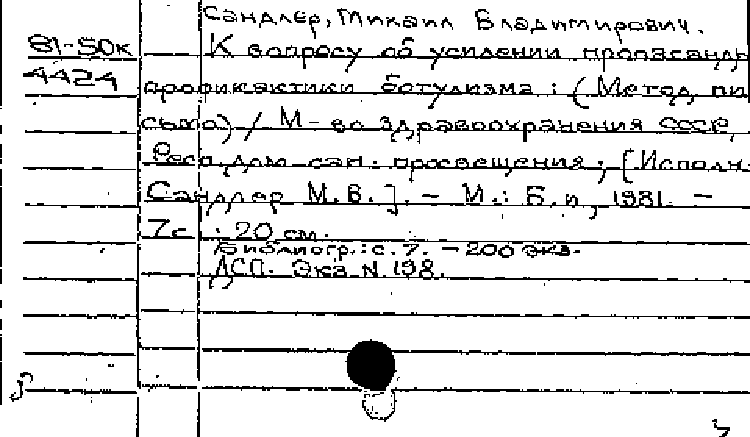 Сандлер, Михаил Владимирович.
81-50к К вопросу об усилении пропаганды
4424 профилактики ботулизма : (Метод. пи
сьмо) / М-во здравоохранения СССР,
Респ. дом сан. просвещения ; [Исполн.
Сандлер М.В.]. - М.: Б.и., 1981. -
7с. ; 20 см.
Библиогр.: с. 7. - 200 экз.
ДСП. Экз. N 198.